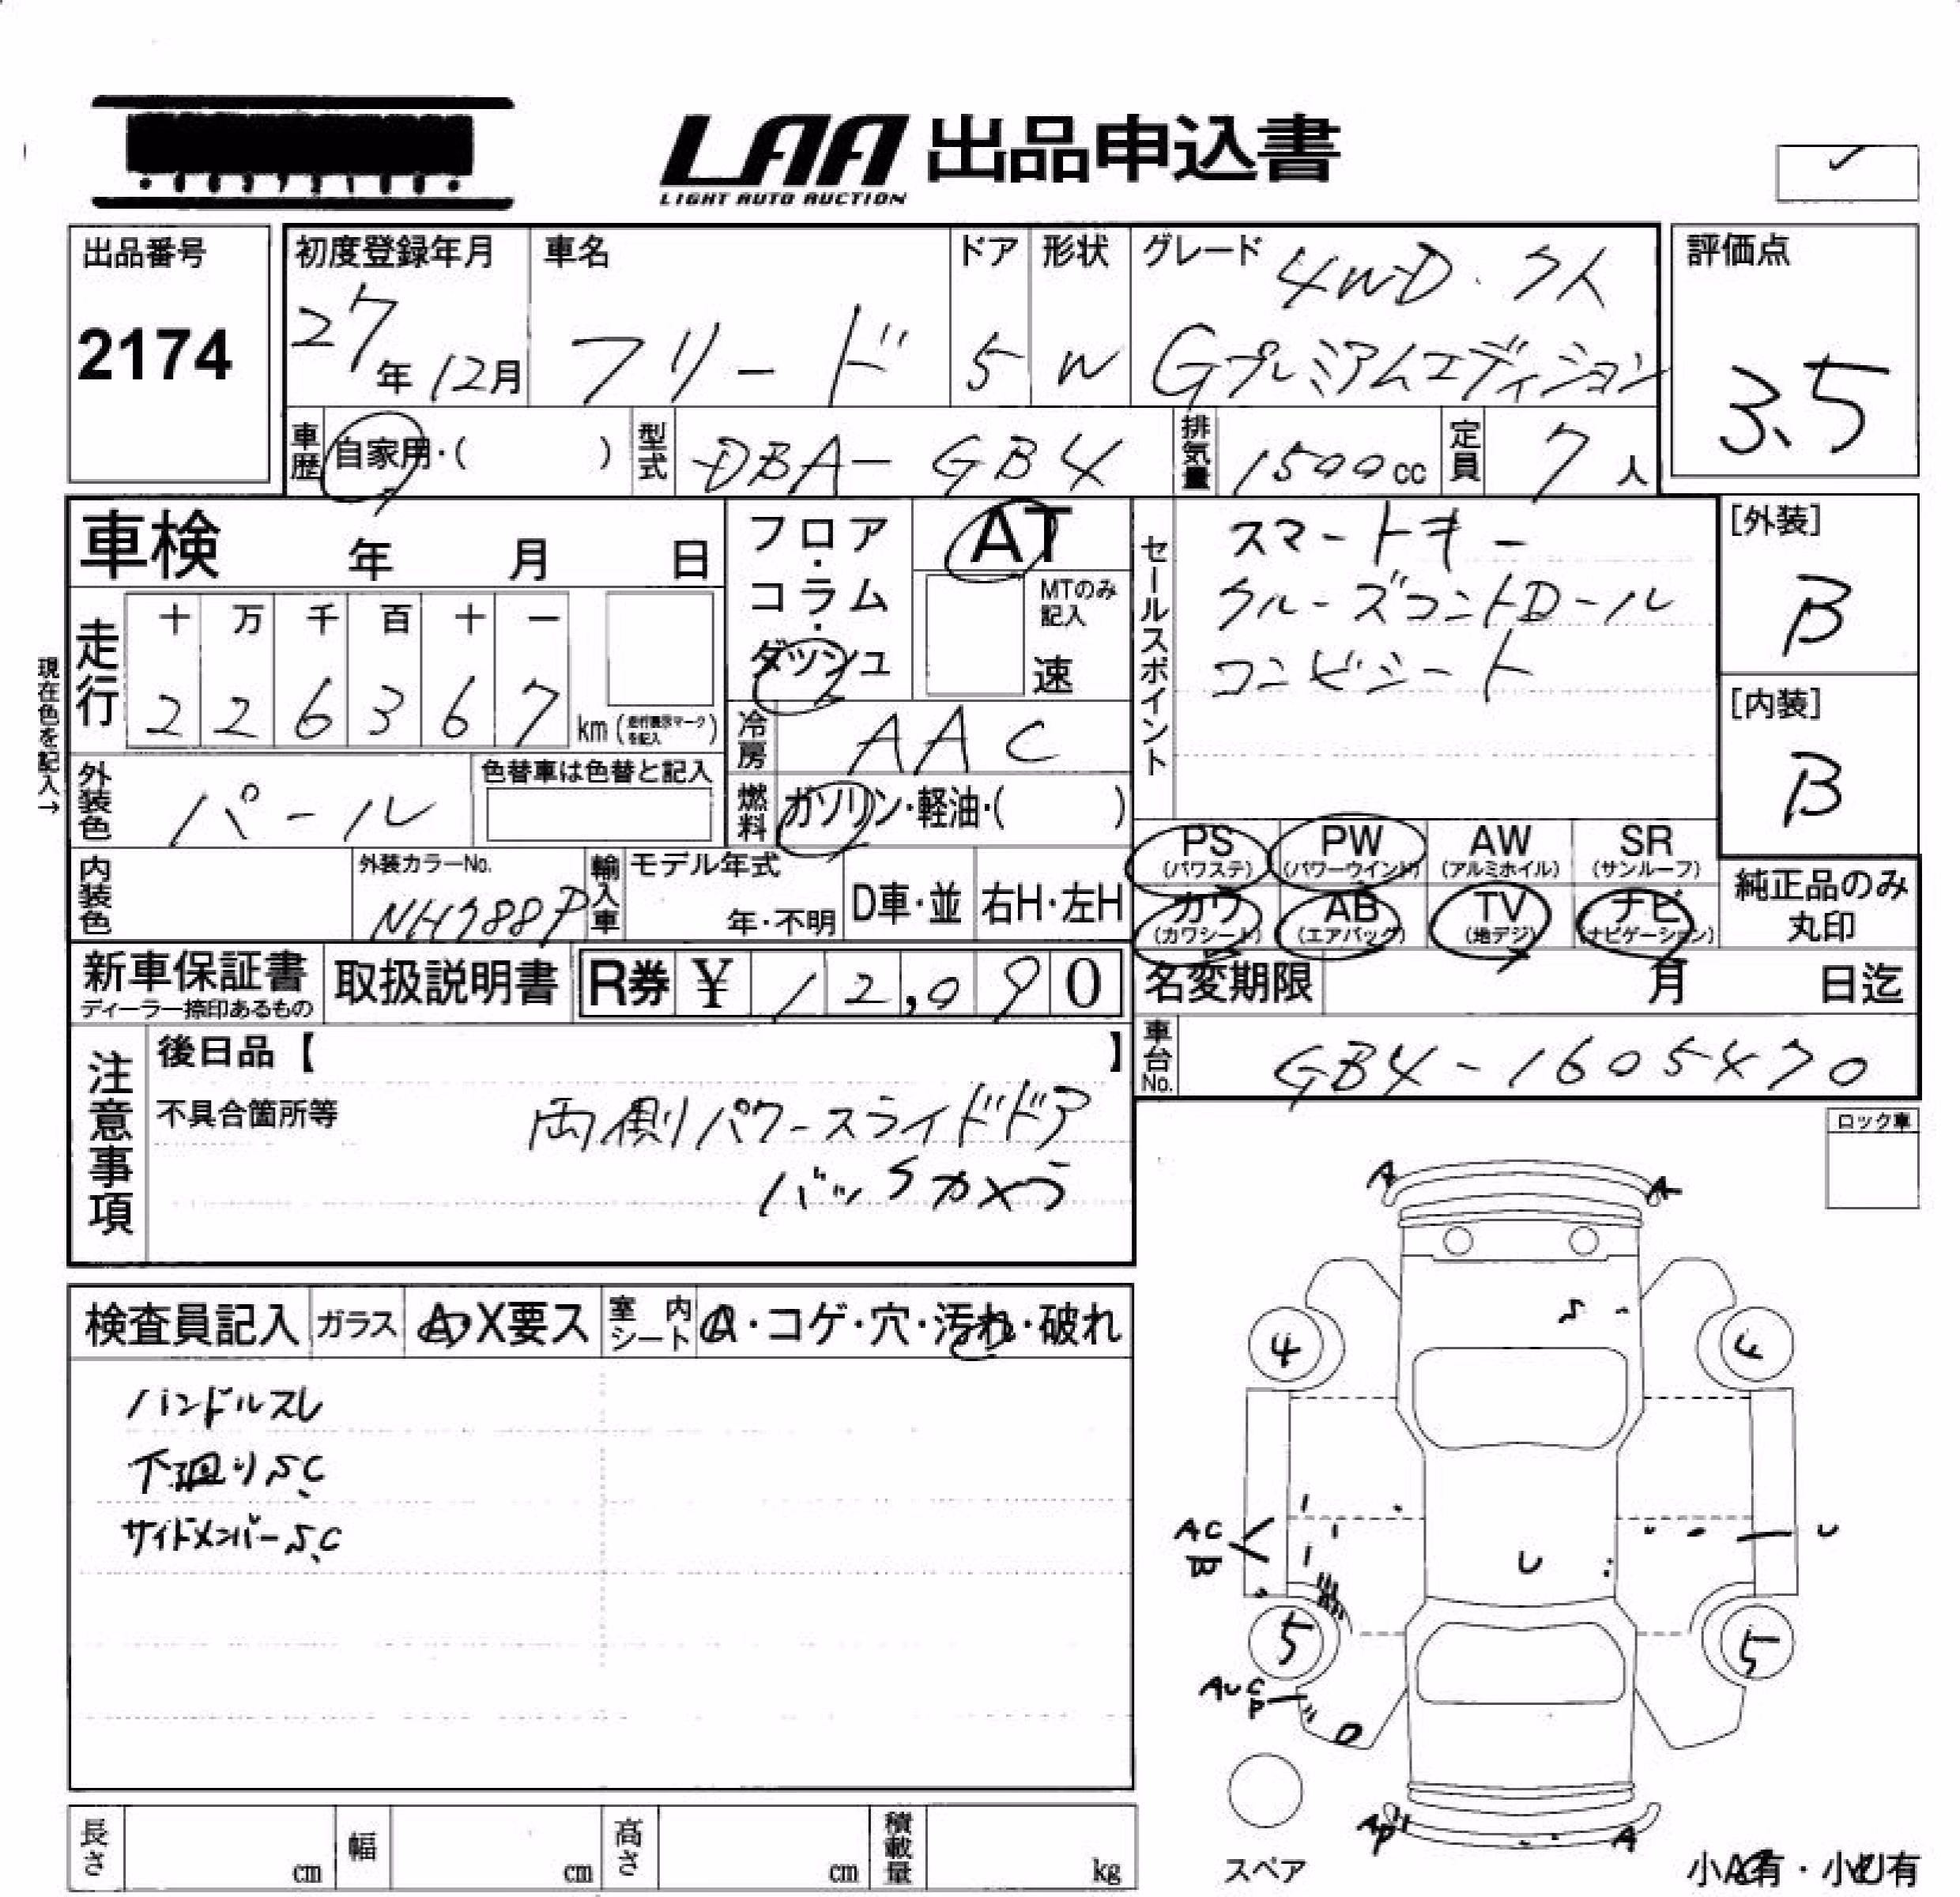 LAA 出品申込書
LIGHT AUTO AUCTION
出品番号
2174
初度登録年月
27年12月
車名
フリード
ドア
5
形状
W
グレード 4WD.
Gプレミアムエディション
評価点
3.5
車歴
自家用・( )
型式
DBA-GB4
排気量
1500cc
定員
7人
車検 年 月 日
フロア・コラム・ダッシュ
AT
MTのみ記入
速
セールスポイント
スマートキー
クルーズコントロール
コンビシート
[外装]
B
[内装]
B
現在色を記入→
走行
十 万 千 百 十 一
2 2 6 3 6 7 km(走行表示マークを記入)
冷房
AAC
外装色
パール
色替車は色替と記入
燃料
ガソリン・軽油・( )
PS (パワステ)
PW (パワーウインド)
AW (アルミホイル)
SR (サンルーフ)
内装色
外装カラーNo.
NH788P
輸入車
モデル年式
年・不明
D車・並
右H・左H
カワ (カワシート)
AB (エアバック)
TV (地デジ)
ナビ (ナビゲーション)
純正品のみ丸印
新車保証書
ディーラー捺印あるもの
取扱説明書
R券 ¥ 12,090
名変期限 月 日迄
車台No.
GB4-1605470
注意事項
後日品【 】
不具合箇所等
両側パワースライドドア
バックカメラ
ロック車
検査員記入
ガラス
A・X要ス
室内シート
A・コゲ・穴・汚れ・破れ
ハンドルスレ
下廻りS.C
サイドメンバーS.C
A A
S
4 4
AC
B
U
U
5 5
AUC
P
AP A
スペア
小A有・小U有
長さ cm
幅 cm
高さ cm
積載量 kg